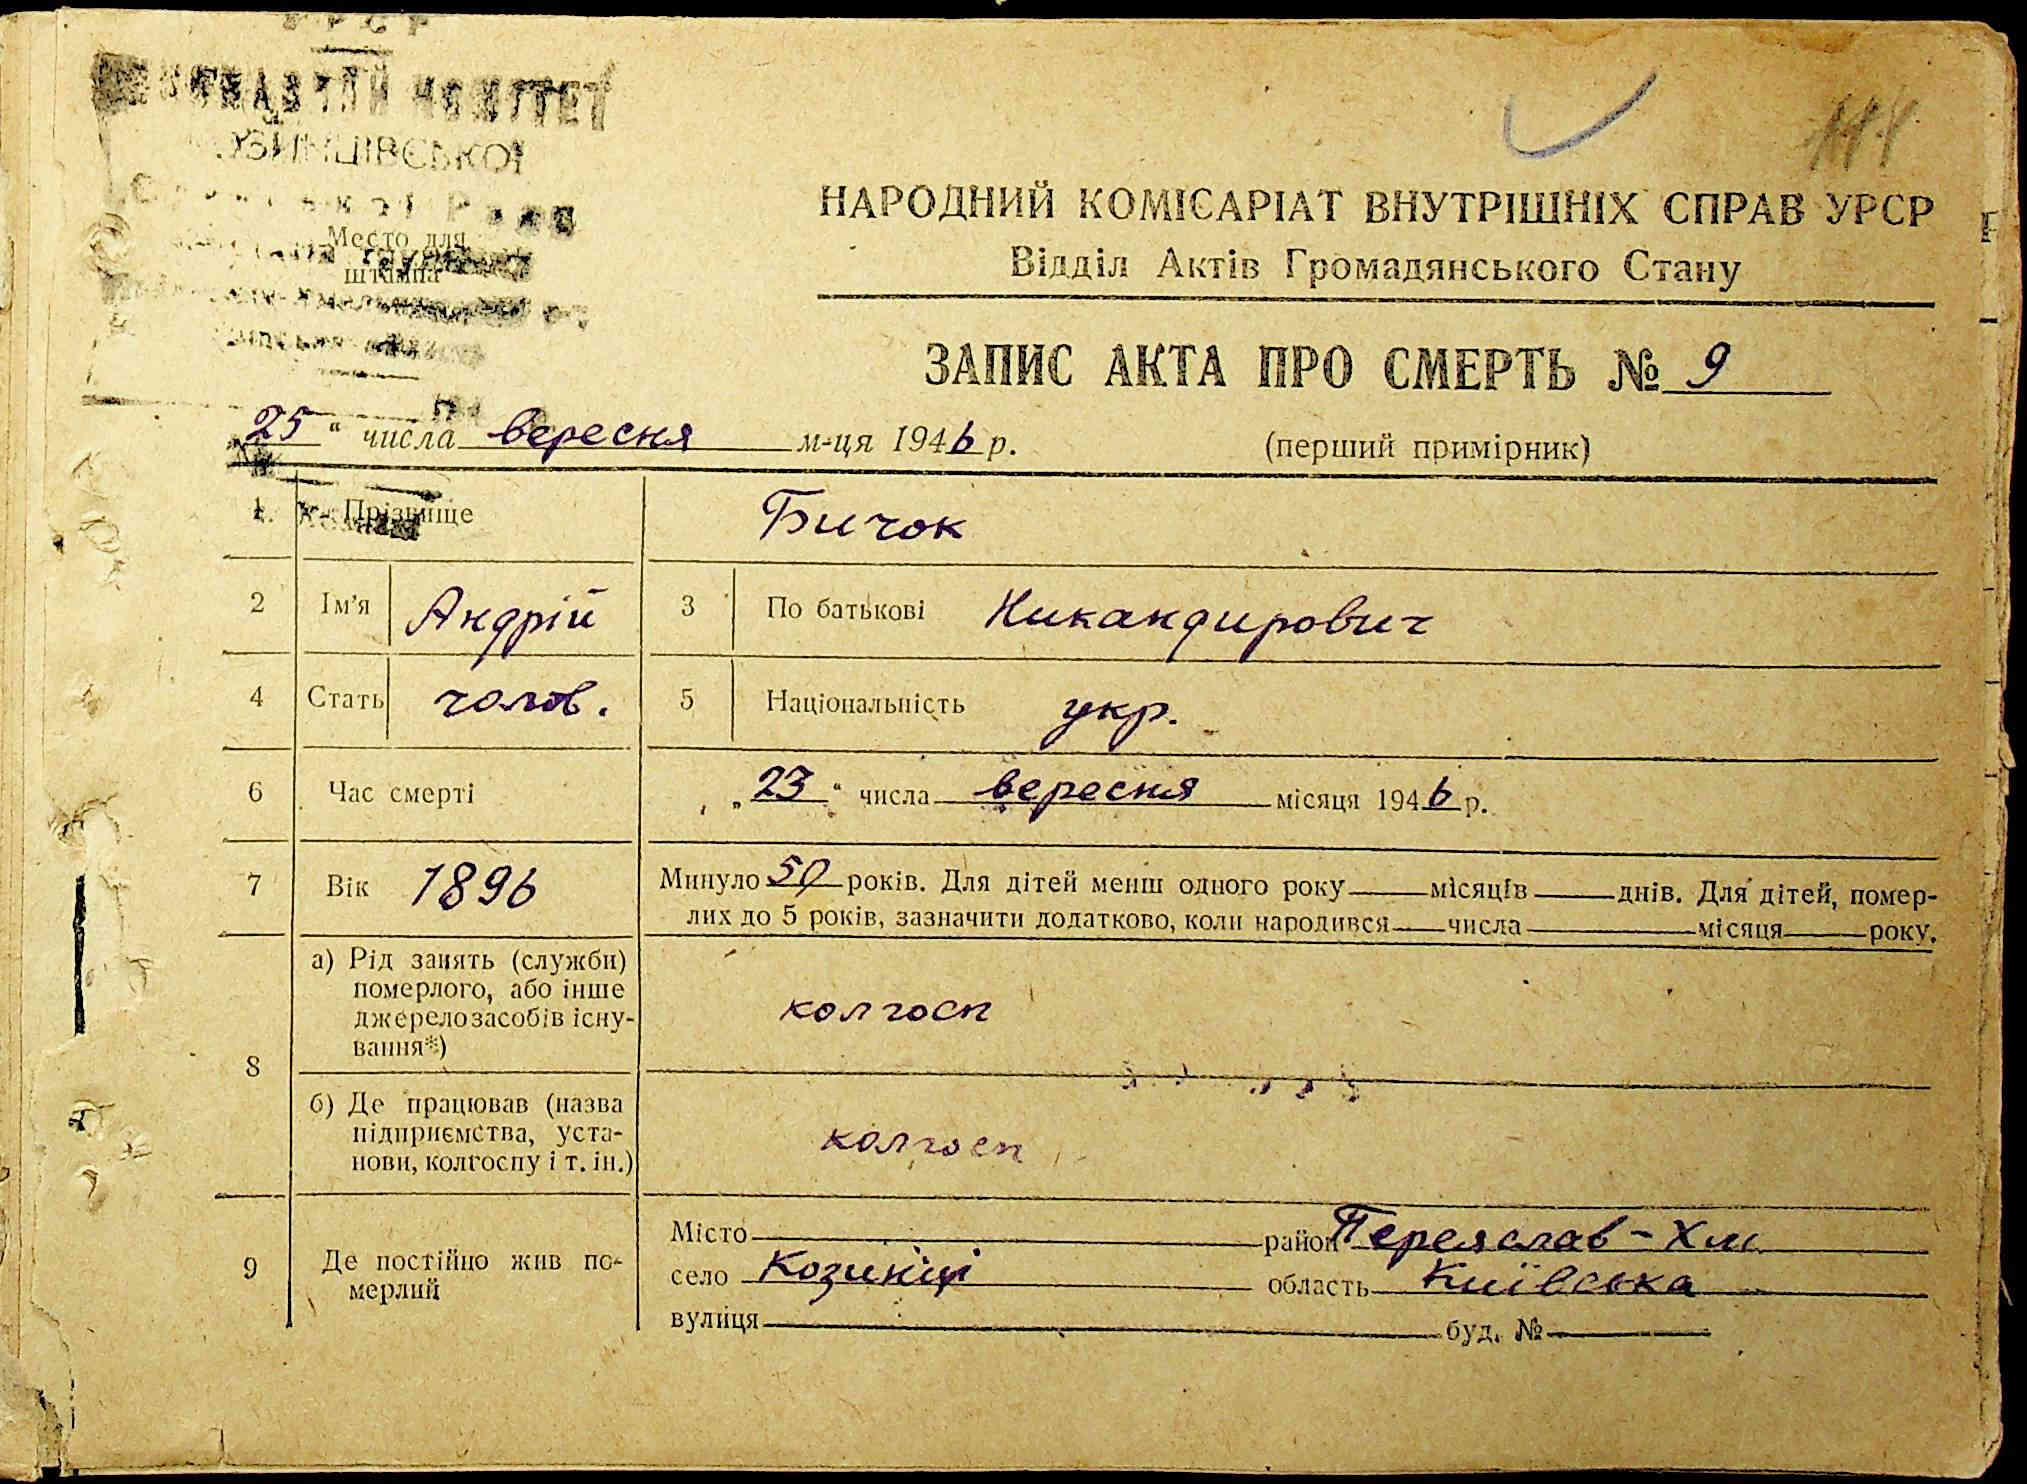 УРСР
ВИКОНАВЧИЙ КОМІТЕТ
КОЗИНЦІВСЬКОЇ
Место для
штампа
111
НАРОДНИЙ КОМІСАРІАТ ВНУТРІШНІХ СПРАВ УРСР
Відділ Актів Громадянського Стану
ЗАПИС АКТА ПРО СМЕРТЬ № 9
25 " числа вересня м-ця 1946 р.
(перший примірник)
1. Прізвище Бичок
2 Ім'я Андрій 3 По батькові Никандирович
4 Стать чолов. 5 Національність укр.
6 Час смерті „23" числа вересня місяця 1946 р.
7 Вік 1896 Минуло 50 років. Для дітей менш одного року місяців днів. Для дітей, помер-
лих до 5 років, зазначити додатково, коли народився числа місяця року.
8 а) Рід занять (служби)
померлого, або інше
джерело засобів існу-
вання*) колгосп
б) Де працював (назва
підприємства, уста-
нови, колгоспу і т. ін.) колгосп
9 Де постійно жив по-
мерлий
Місто район Переяслав-Хм.
село Козинці область Київська
вулиця буд. №